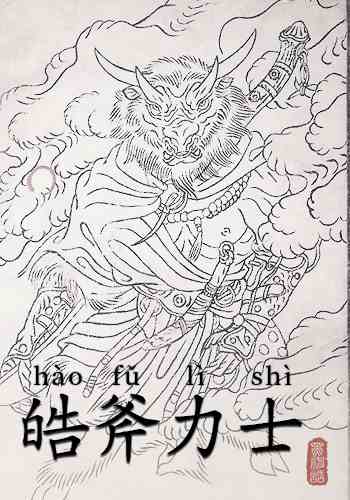 hào fǔ lì shì
皓斧力士